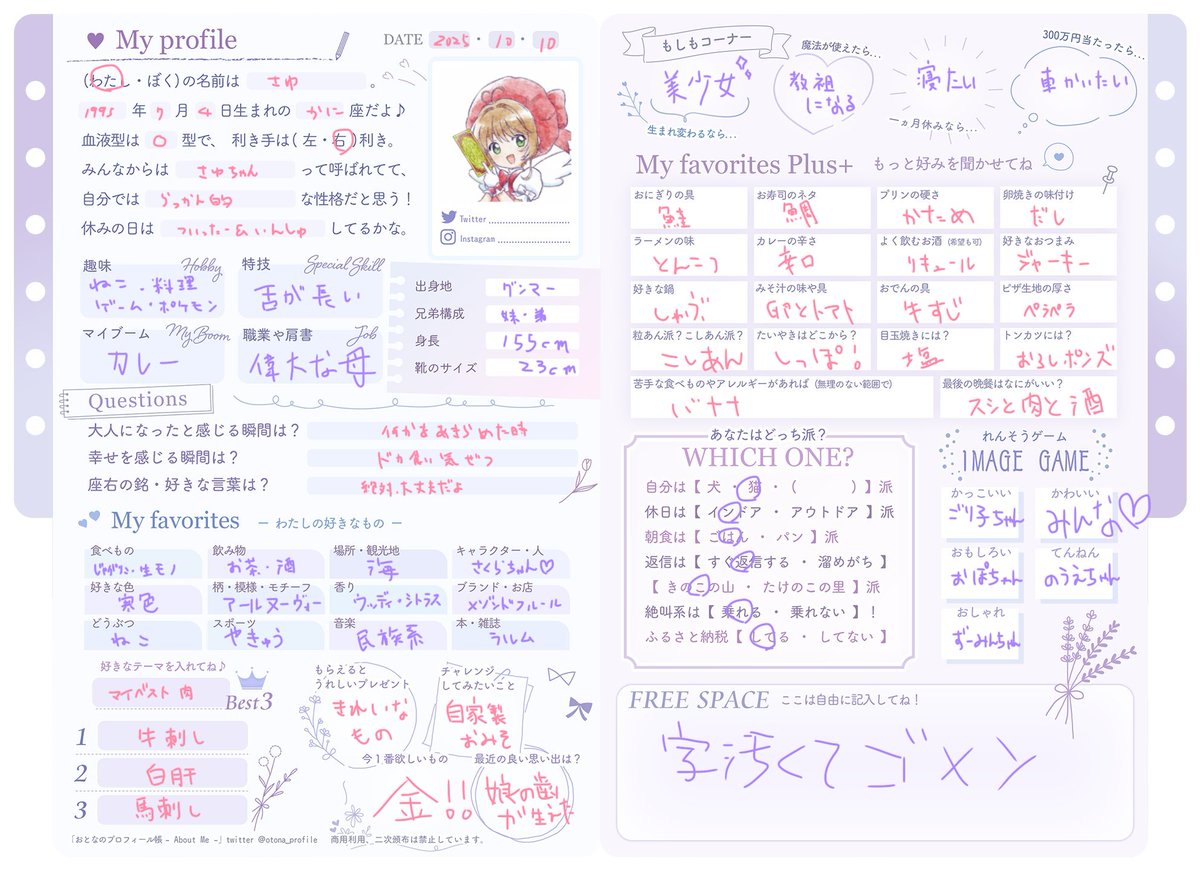 My profile
DATE 2025・10・10
(わたし・ぼく)の名前は さゆ 。
1995 年 7 月 4 日生まれの かに 座だよ♪
血液型は O 型で、 利き手は(左・右)利き。
みんなからは さゆちゃん って呼ばれてて、
自分では らっかん的 な性格だと思う！
休みの日は ついったー&いんしゅ してるかな。
Twitter
Instagram
趣味 Hobby
ねこ・料理
ゲーム・ポケモン
特技 Special Skill
舌が長い
マイブーム My Boom
カレー
職業や肩書 Job
偉大な母
出身地 グンマー
兄弟構成 妹・弟
身長 155cm
靴のサイズ 23cm
Questions
大人になったと感じる瞬間は？ 何かをあきらめた時
幸せを感じる瞬間は？ ドカ食い気ぜつ
座右の銘・好きな言葉は？ 絶対、大丈夫だよ
My favorites － わたしの好きなもの －
食べもの 飲み物 場所・観光地 キャラクター・人
じゃがりこ・生モノ お茶・酒 海 さくらちゃん♡
好きな色 柄・模様・モチーフ 香り ブランド・お店
寒色 アールヌーヴォー ウッディ・シトラス メゾンドフルール
どうぶつ スポーツ 音楽 本・雑誌
ねこ やきゅう 民族系 ラルム
好きなテーマを入れてね♪
マイベスト 肉
Best3
1 牛刺し
2 白肝
3 馬刺し
もらえると
うれしいプレゼント
きれいな
もの
チャレンジ
してみたいこと
自家製
おみそ
今1番欲しいもの
金!!
最近の良い思い出は？
娘の歯
が生えた
「おとなのプロフィール帳 - About Me -」twitter @otona_profile 商用利用、二次頒布は禁止しています。
もしもコーナー
美少女
生まれ変わるなら...
魔法が使えたら...
教祖
になる
寝たい
一ヵ月休みなら...
300万円当たったら...
車かいたい
My favorites Plus+ もっと好みを聞かせてね
おにぎりの具 お寿司のネタ プリンの硬さ 卵焼きの味付け
鮭 鯛 かため だし
ラーメンの味 カレーの辛さ よく飲むお酒 (希望も可) 好きなおつまみ
とんこつ 辛口 リキュール ジャーキー
好きな鍋 みそ汁の味や具 おでんの具 ピザ生地の厚さ
しゃぶ トマト 牛すじ ペラペラ
粒あん派？こしあん派？ たいやきはどこから？ 目玉焼きには？ トンカツには？
こしあん しっぽ! 塩 おろしポンズ
苦手な食べものやアレルギーがあれば (無理のない範囲で) 最後の晩餐はなにがいい？
バナナ スシと肉と酒
あなたはどっち派？
WHICH ONE?
自分は【 犬 ・ 猫 ・ ( ) 】派
休日は【 インドア ・ アウトドア 】派
朝食は【 ごはん ・ パン 】派
返信は【 すぐ返信する ・ 溜めがち 】
【 きのこの山 ・ たけのこの里 】派
絶叫系は【 乗れる ・ 乗れない 】！
ふるさと納税【 してる ・ してない 】
れんそうゲーム
IMAGE GAME
かっこいい かわいい
ごり子ちゃん みんなの♡
おもしろい てんねん
おぽちゃん のうえちゃん
おしゃれ
ずーみんちゃん
FREE SPACE ここは自由に記入してね！
字汚くてゴメン